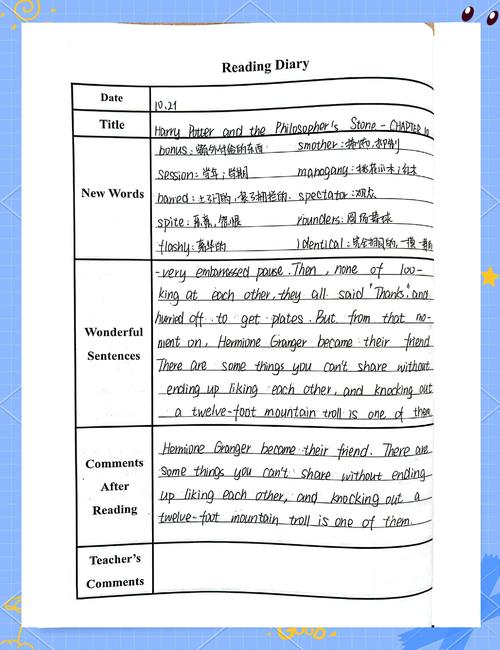 Reading Diary
Date
10.21
Title
Harry Potter and the Philosopher's Stone - CHAPTER 10
New Words
bonus: 额外付给的东西 smother:
session: 学年；学期 mahogany: 桃花心木；红木
barred: 上了闩的， spectator: 观众
spite: 恶意，怨恨 rounders: 圆场棒球
flashy: 奢华的 identical: 完全相同的，一模一样的
Wonderful
Sentences
-very embarrassed pause. Then, none of loo-
king at each other, they all said "Thanks", and
hurried off to get plates. But from that mo-
ment on, Hermione Granger became their friend
There are some things you can't share without
ending up liking each other, and knocking out
a twelve-foot mountain troll is one of them
Comments
After
Reading
Hermione Granger became their friend. There are
some things you can't share without ending
up liking each other, and knocking out a
twelve-foot mountain troll is one of them.
Teacher's
Comments
GOOD